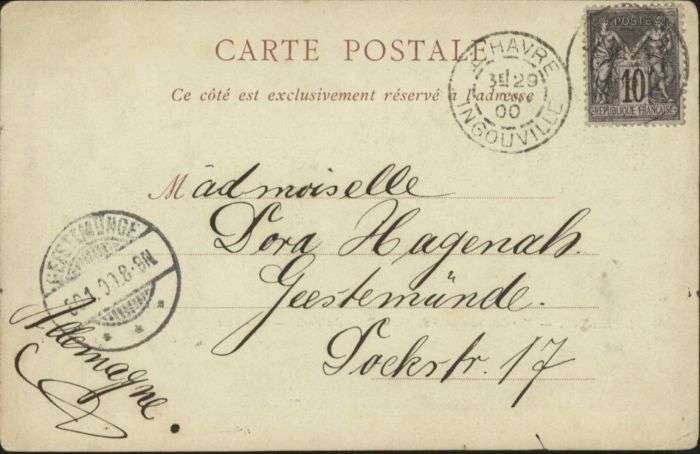 CARTE POSTALE
Ce côté est exclusivement réservé à l'adresse
LE HAVRE
29
00
INGOUVILLE
POSTE
10
REPUBLIQUE FRANÇAISE
Mademoiselle
Dora Hagenah.
Geestemünde.
Dockstr. 17
Allemagne.
GEESTEMÜNDE
8-9N